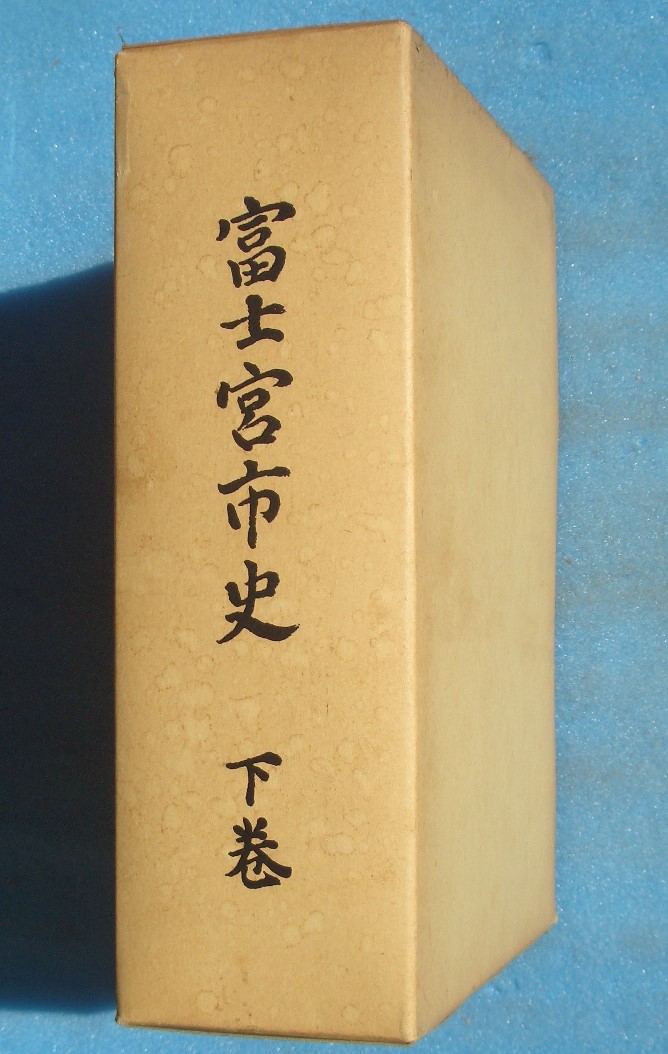 富士宮市史 下巻